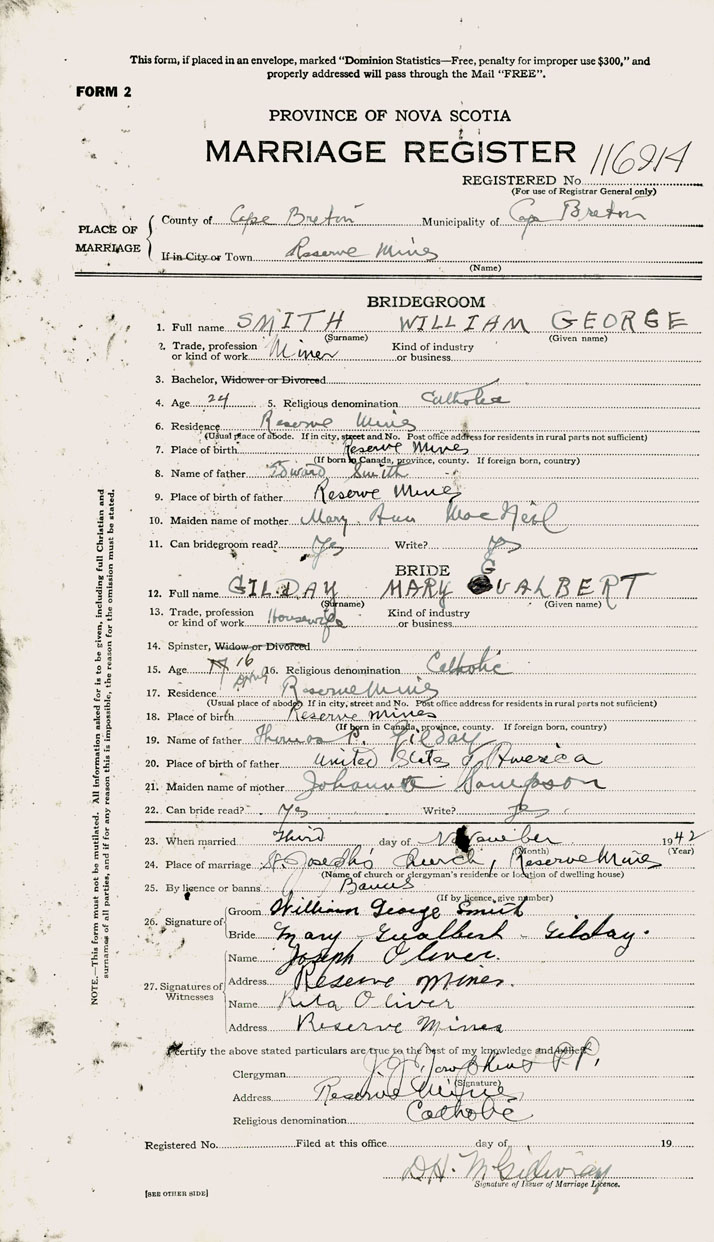 This form, if placed in an envelope, marked "Dominion Statistics—Free, penalty for improper use $300," and
properly addressed will pass through the Mail "FREE".
FORM 2
PROVINCE OF NOVA SCOTIA
MARRIAGE REGISTER 116914
REGISTERED No.
(For use of Registrar General only)
PLACE OF MARRIAGE
County of Cape Breton Municipality of Cape Breton
If in City or Town Reserve Mines
(Name)
BRIDEGROOM
1. Full name SMITH WILLIAM GEORGE
(Surname) (Given name)
2. Trade, profession or kind of work Miner Kind of industry or business
3. Bachelor, Widower or Divorced
4. Age 24 5. Religious denomination Catholic
6. Residence Reserve Mines
(Usual place of abode. If in city, street and No. Post office address for residents in rural parts not sufficient)
7. Place of birth Reserve Mines
(If born in Canada, province, county. If foreign born, country)
8. Name of father Edward Smith
9. Place of birth of father Reserve Mines
10. Maiden name of mother Mary Ann MacNeil
11. Can bridegroom read? Yes Write? Yes
BRIDE
12. Full name GILDAY MARY GUALBERT
(Surname) (Given name)
13. Trade, profession or kind of work Housewife Kind of industry or business
14. Spinster, Widow or Divorced
15. Age 16 16. Religious denomination Catholic
17. Residence Reserve Mines
(Usual place of abode. If in city, street and No. Post office address for residents in rural parts not sufficient)
18. Place of birth Reserve Mines
(If born in Canada, province, county. If foreign born, country)
19. Name of father Thomas P. Gilday
20. Place of birth of father United States of America
21. Maiden name of mother Johanna Sampson
22. Can bride read? Yes Write? Yes
23. When married Third day of November 1942
(Month) (Year)
24. Place of marriage St. Joseph's Church, Reserve Mines
(Name of church or clergyman's residence or location of dwelling house)
25. By licence or banns Banns
(If by licence, give number)
26. Signature of
Groom William George Smith
Bride Mary Gualbert Gilday.
27. Signatures of Witnesses
Name Joseph Oliver.
Address Reserve Mines.
Name Rita Oliver
Address Reserve Mines
I certify the above stated particulars are true to the best of my knowledge and belief.
Clergyman P.P.
(Signature)
Address Reserve Mines
Religious denomination Catholic
Registered No. Filed at this office day of 19
D.H. McGillivray
Signature of Issuer of Marriage Licence.
[SEE OTHER SIDE]
NOTE.—This form must not be mutilated. All information asked for is to be given, including full Christian and
surnames of all parties, and if for any reason this is impossible, the reason for the omission must be stated.